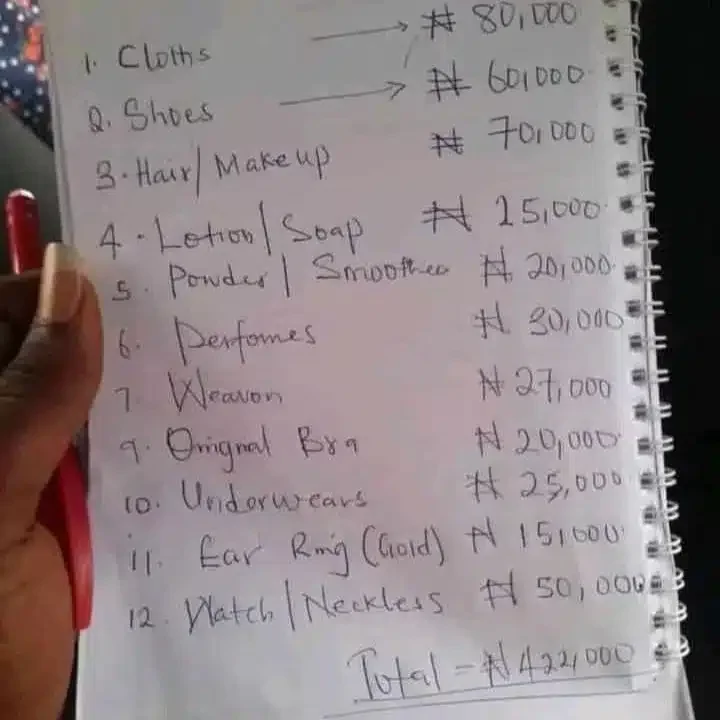 1. Cloths → ₦ 80,000
2. Shoes → ₦ 60,000
3. Hair/Makeup ₦ 70,000
4. Lotion/Soap ₦ 25,000
5. Powder/Smoother ₦ 20,000
6. Perfomes ₦ 30,000
7. Weavon ₦ 27,000
9. Original Bra ₦ 20,000
10. Underwears ₦ 25,000
11. Ear Ring (Gold) ₦ 15,000
12. Watch/Neckless ₦ 50,000
Total = ₦ 422,000